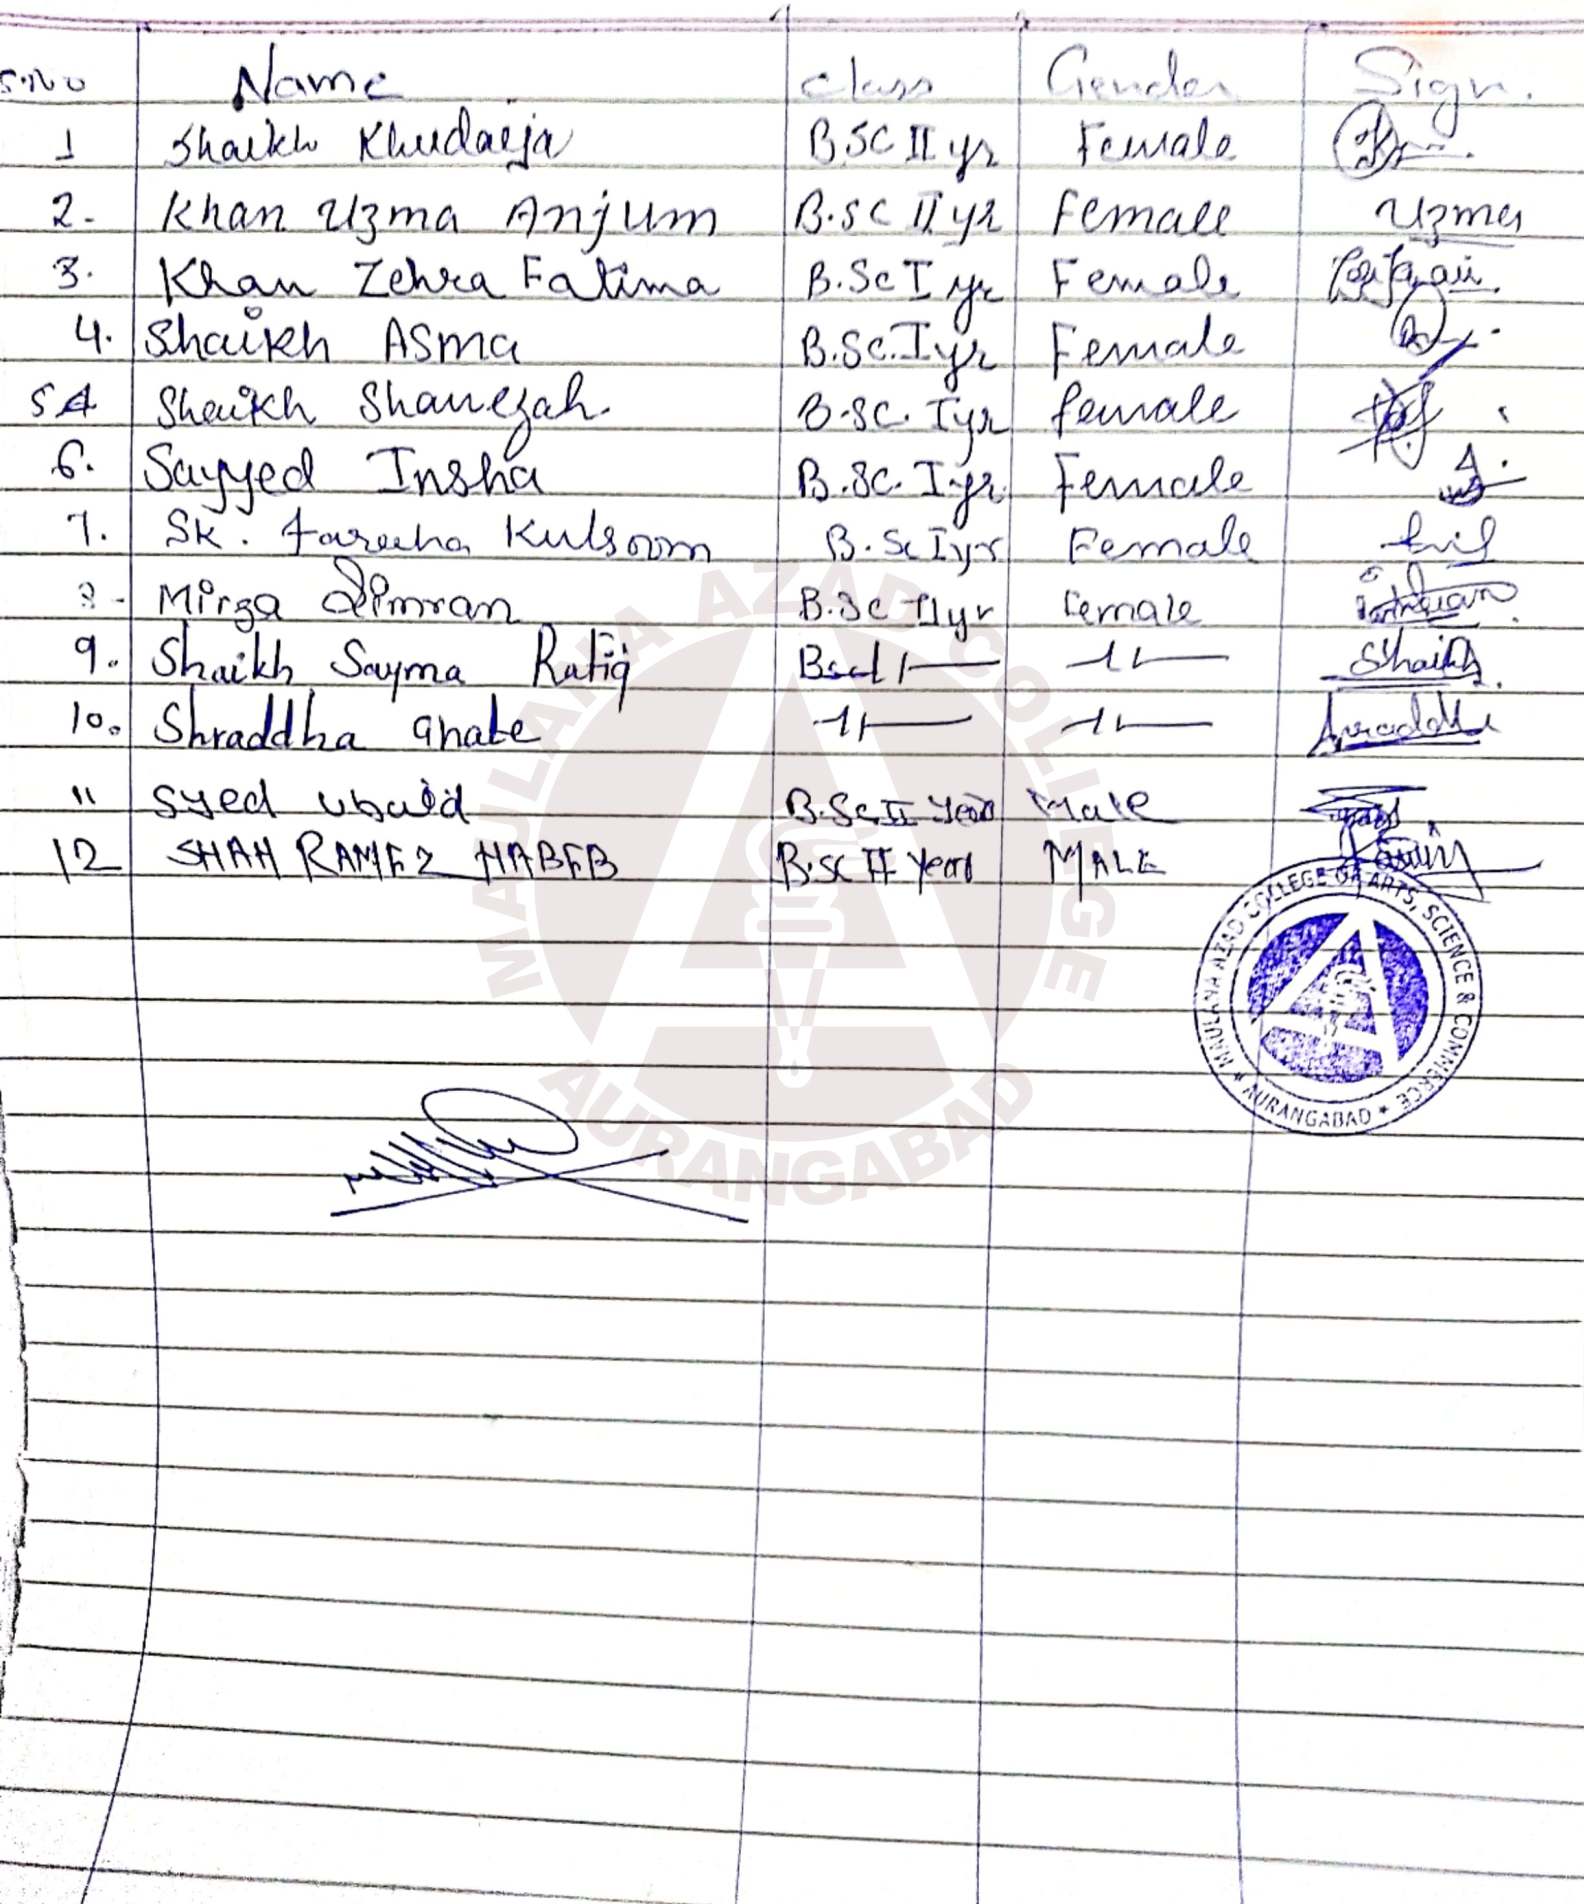 S.No Name Class Gender Sign.
1 Shaikh Khudaija B.SC II yr Female
2. Khan Uzma Anjum B.SC II yr Female Uzma
3. Khan Zehra Fatima B.Sc I yr Female
4. Shaikh ASma B.Sc. I yr Female
5 Shaikh Shanezah. B.SC. I yr female
6. Sayyed Insha B.SC. I yr. Female
7. SK. Fareeha Kulsoom B.Sc I yr Female
8- Mirza Simran B.Sc II yr Female
9. Shaikh Sayma Rafiq Bsc -11- -11- Shaikh
10. Shraddha Ghate -11- -11- Shraddha
11 Syed Ubaid B.Sc II Year Male
12 SHAH RAMEZ HABEEB B.Sc II Year MALE
MAULANA AZAD COLLEGE
AURANGABAD
MAULANA AZAD COLLEGE OF ARTS, SCIENCE & COMMERCE
* AURANGABAD *